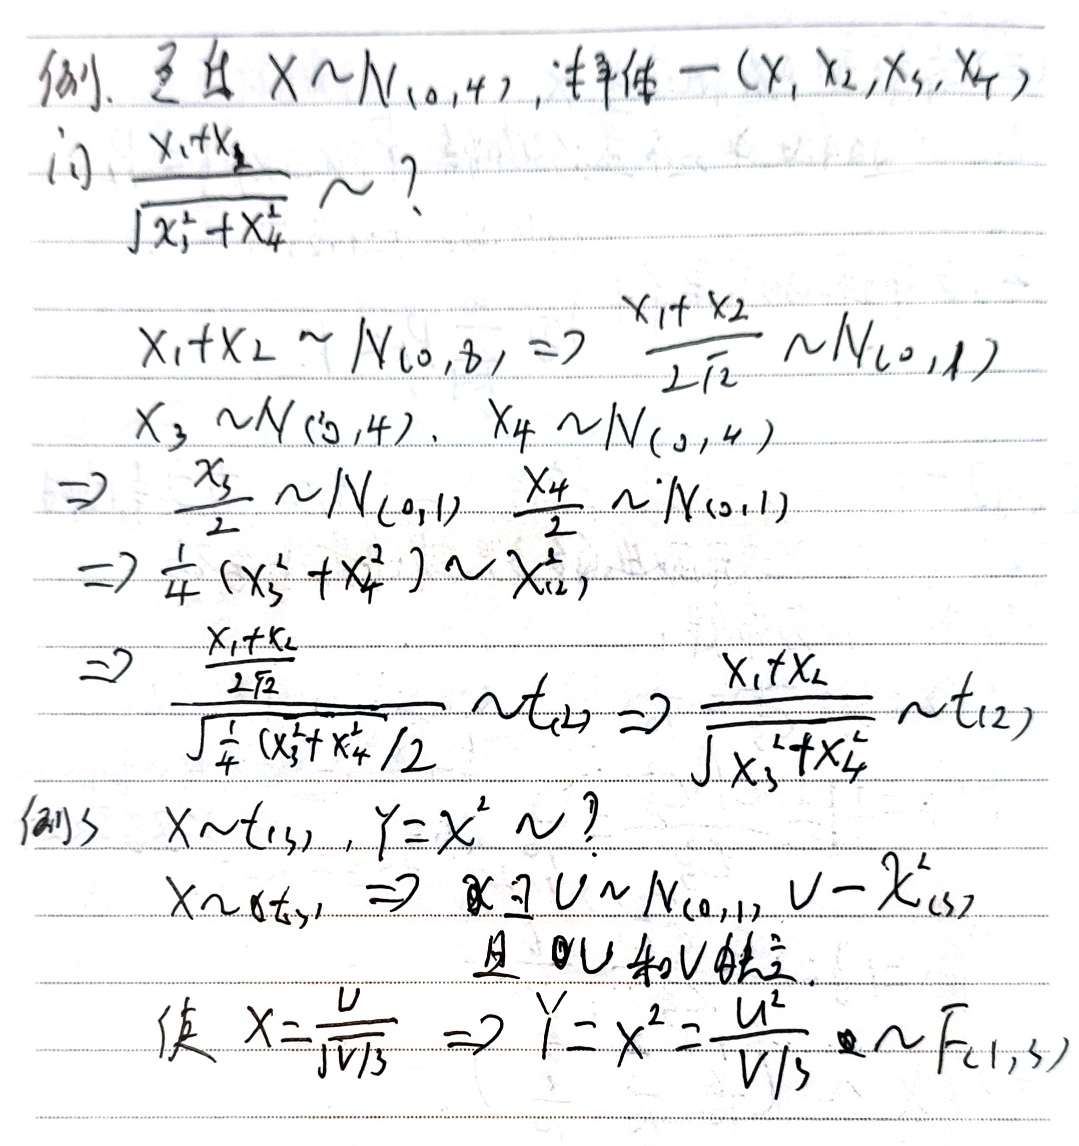 例. 总体 X~N(0,4), 样本一(X₁ X₂,X₃,X₄)
问 (X₁+X₂)/√(X₃²+X₄²) ~ ?
X₁+X₂ ~ N(0,8) => (X₁+X₂)/(2√2) ~ N(0,1)
X₃ ~ N(0,4). X₄ ~ N(0,4)
=> X₃/2 ~ N(0,1) X₄/2 ~ N(0,1)
=> 1/4 (X₃²+X₄²) ~ χ²(2)
=> ((X₁+X₂)/(2√2))/(√(1/4 (X₃²+X₄²)/2)) ~ t(2) => (X₁+X₂)/√(X₃²+X₄²) ~ t(2)
例3 X~t(3), Y=X² ~ ?
X~t(3) => ∃ U~N(0,1), V-χ²(3)
且 U和V独立.
使 X=U/√(V/3) => Y=X²=U²/(V/3) ~ F(1,3)